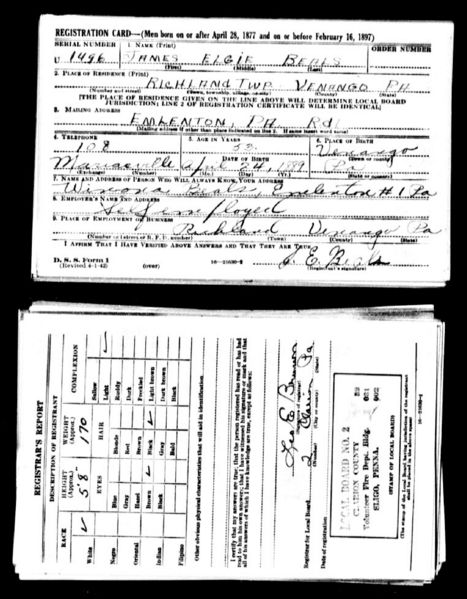 REGISTRATION CARD—(Men born on or after April 28, 1877 and on or before February 16, 1897)
SERIAL NUMBER 1. NAME (Print) ORDER NUMBER
U 1496 JAMES ELGIE BEALS
(First) (Middle) (Last)
2. PLACE OF RESIDENCE (Print)
RICHLAND TWP. VENANGO PA
(Number and street) (Town, township, village, or city) (County) (State)
[THE PLACE OF RESIDENCE GIVEN ON THE LINE ABOVE WILL DETERMINE LOCAL BOARD
JURISDICTION; LINE 2 OF REGISTRATION CERTIFICATE WILL BE IDENTICAL]
3. MAILING ADDRESS
EMLENTON, PA. Rd1
[Mailing address if other than place indicated on line 2. If same insert word same]
4. TELEPHONE 5. AGE IN YEARS 6. PLACE OF BIRTH
108 Venango
DATE OF BIRTH (Town or county)
Mariasville April 24, 1889 Pa
(Exchange) (Number) (Mo.) (Day) (Yr.) (State or country)
7. NAME AND ADDRESS OF PERSON WHO WILL ALWAYS KNOW YOUR ADDRESS
Winona Beals, Emlenton #1 Pa
8. EMPLOYER'S NAME AND ADDRESS
Self employed
9. PLACE OF EMPLOYMENT OR BUSINESS
Richland Venango Pa
(Number and street or R. F. D. number) (Town) (County) (State)
I AFFIRM THAT I HAVE VERIFIED ABOVE ANSWERS AND THAT THEY ARE TRUE.
D. S. S. Form 1
(Revised 4-1-42) (over) 16—21630-2 J. E. Beals
(Registrant's signature)
REGISTRAR'S REPORT
DESCRIPTION OF REGISTRANT
RACE HEIGHT (Approx.) WEIGHT (Approx.) COMPLEXION
5'8 170
EYES HAIR
White ✓ Blue Blonde Sallow
Light ✓
Negro Gray Red Ruddy
Hazel Brown Dark
Oriental Brown ✓ Black ✓ Freckled
Black Gray Light brown
Indian Bald Dark brown
Black
Filipino
Other obvious physical characteristics that will aid in identification
I certify that my answers are true; that the person registered has read or has had
read to him his own answers; that I have witnessed his signature or mark and that
all of his answers of which I have knowledge are true, except as follows:
Leo E Brown
(Signature of registrar)
Registrar for Local Board 2 Clarion Pa.
(Number) (City or county) (State)
Date of registration
LOCAL BOARD NO. 2 32
CLARION COUNTY 031
Volunteer Fire Dept. Bldg. 002
SLIGO, PENNA.
(STAMP OF LOCAL BOARD)
(The stamp of the Local Board having jurisdiction of the registrant
shall be placed in the above space)